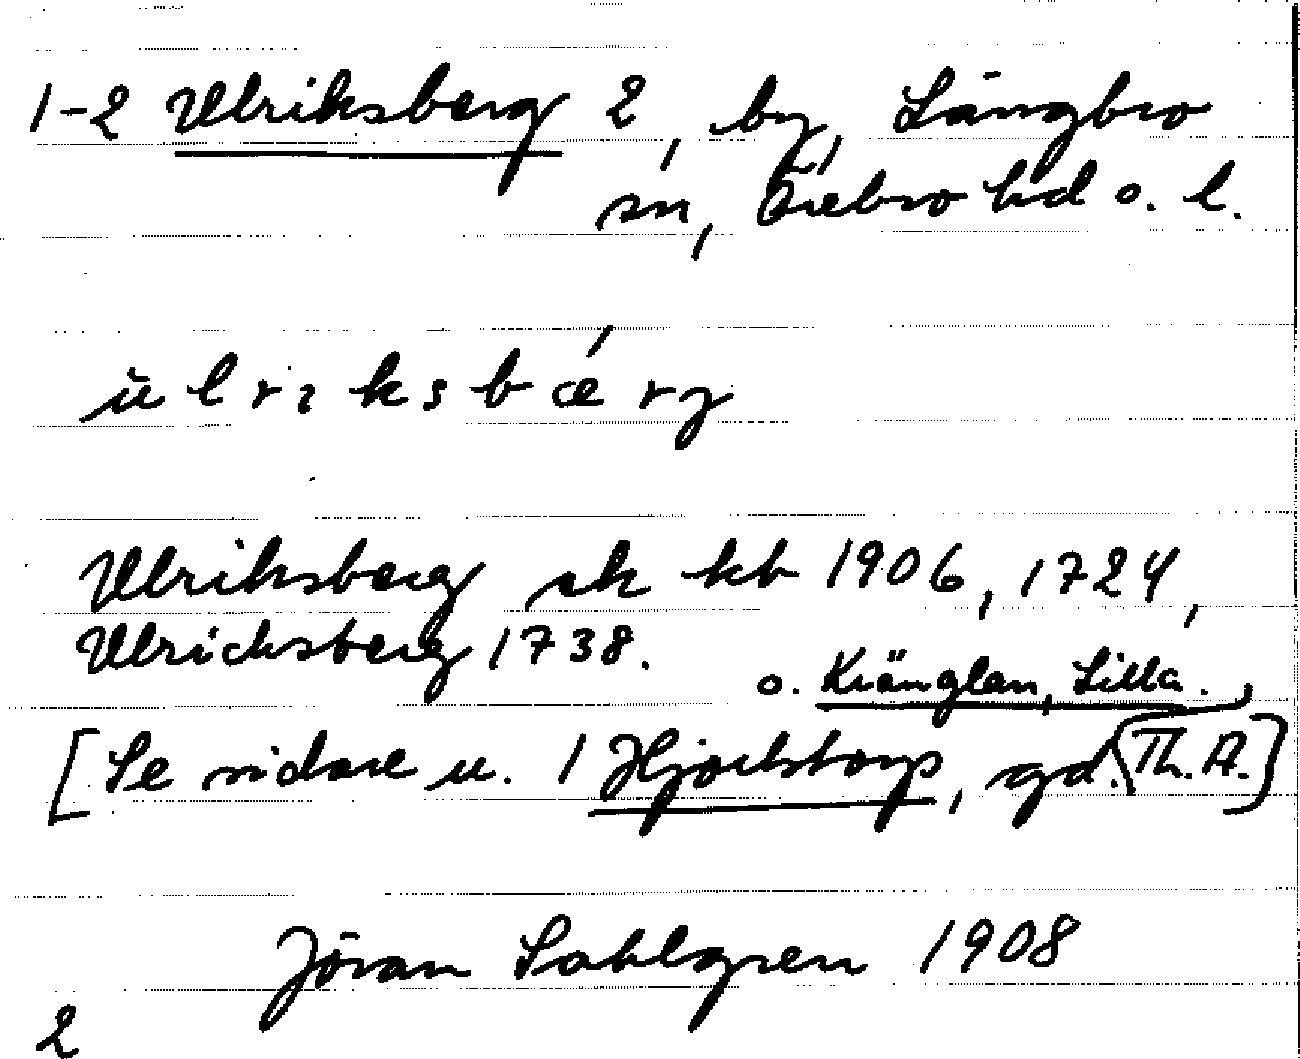 1-2 Ulriksberg 2, by, Längbro
sn, Örebro hd o. l.
ùlriksbǽrg
Ulriksberg sk kb 1906, 1724,
Ulricksberg 1738.
o. Kränglan, Lilla.
[Se vidare u. 1 Hjortstorp, gd. Th. A.]
Jöran Sahlgren 1908
2